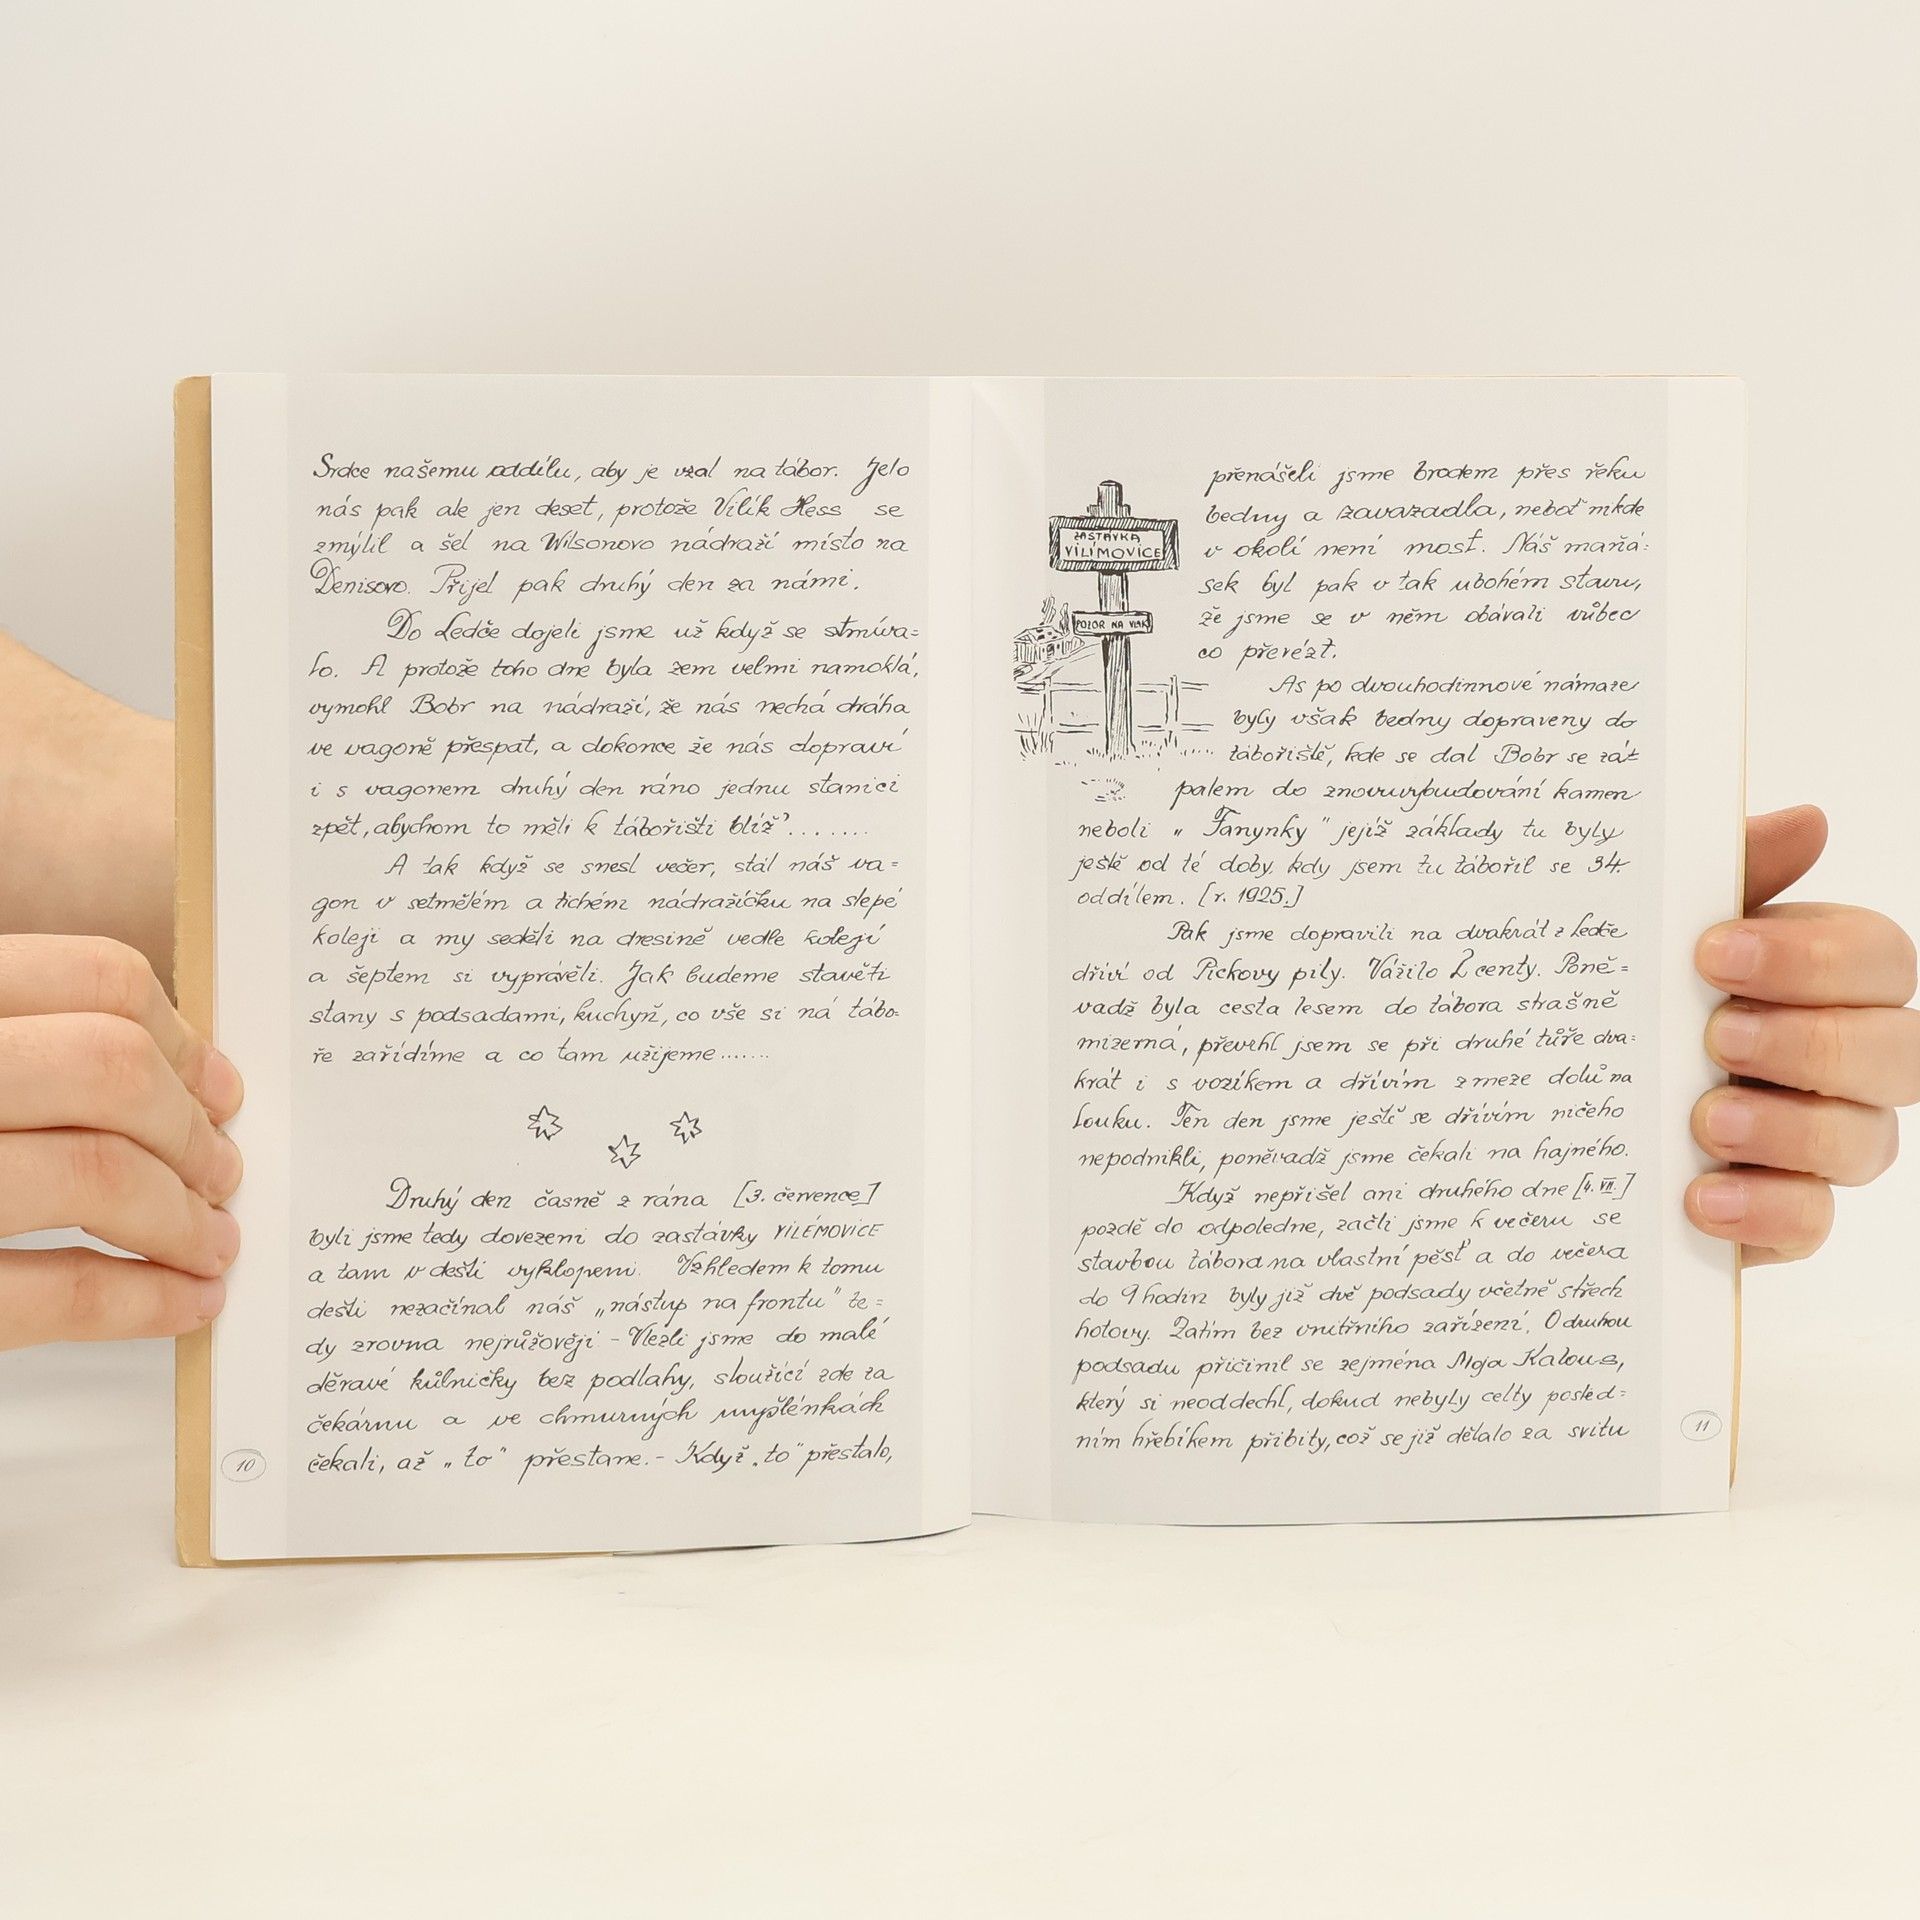 Srdce našemu oddílu, aby je vzal na tábor. Jelo
nás pak ale jen deset, protože Vilík Hess se
zmýlil a šel na Wilsonovo nádraží místo na
Denisovo. Přijel pak druhý den za námi.
Do Ledče dojeli jsme už když se stmíva=
lo. A protože toho dne byla zem velmi namoklá,
vymohl Bobr na nádraží, že nás nechá dráha
ve vagoně přespat, a dokonce že nás dopraví
i s vagonem druhý den ráno jednu stanici
zpět, abychom to měli k tábořišti blíž'.......
A tak když se snesl večer, stál náš va=
gon v setmělém a tichém nádražíčku na slepé
koleji a my seděli na dresině vedle kolejí
a šeptem si vyprávěli. Jak budeme stavěti
stany s podsadami, kuchyň, co vše si na tábo=
ře zařídíme a co tam užijeme.......
Druhý den časně z rána [3. července]
byli jsme tedy dovezeni do zastávky VILÉMOVICE
a tam v dešti vyklopeni. Vzhledem k tomu
dešti nezačínal náš „nástup na frontu" te=
dy zrovna nejrůžověji - Vlezli jsme do malé
děravé kůlničky bez podlahy, sloužící zde za
čekárnu a ve chmurných myšlénkách
čekali, až „to" přestane. - Když „to" přestalo,
10
ZASTÁVKA
VILÍMOVICE
POZOR NA VLAK
přenášeli jsme brodem přes řeku
bedny a zavazadla, neboť nikde
v okolí není most. Náš maňá=
sek byl pak v tak ubohém stavu,
že jsme se v něm obávali vůbec
co převézt.
As po dvouhodinnové námaze
byly však bedny dopraveny do
tábořiště, kde se dal Bobr se zá=
palem do znovuvybudování kamen
neboli „Fanynky" jejíž základy tu byly
ještě od té doby, kdy jsem tu tábořil se 34.
oddílem. [r. 1925.]
Pak jsme dopravili na dvakrát z Ledče
dříví od Pickovy pily. Vážilo 2 centy. Poně=
vadž byla cesta lesem do tábora strašně
mizerná, převrhl jsem se při druhé túře dva=
krát i s vozíkem a dřívím z meze dolů na
louku. Ten den jsme ještě se dřívím ničeho
nepodnikli, poněvadž jsme čekali na hajného.
Když nepřišel ani druhého dne [4. VII.]
pozdě do odpoledne, začli jsme k večeru se
stavbou tábora na vlastní pěsť a do večera
do 9 hodin byly již dvě podsady včetně střech
hotovy. Zatím bez vnitřního zařízení. O druhou
podsadu přičinil se zejména Moja Kalous,
který si neoddechl, dokud nebyly celty posled=
ním hřebíkem přibity, což se již dělalo za svitu
11